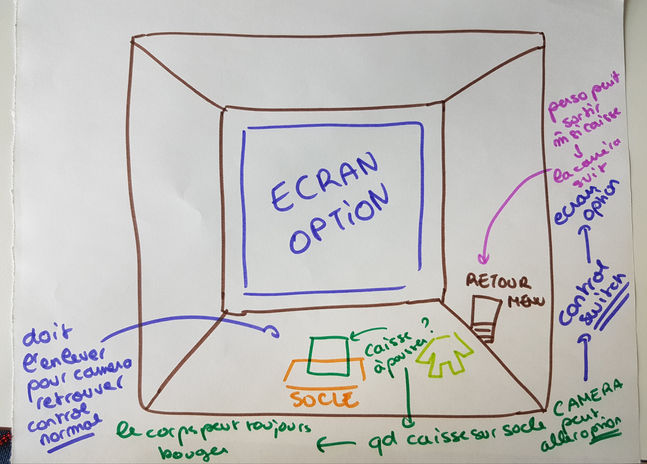 ECRAN
OPTION
perso peut
sortir
m si caisse
la caméra
suit
ecran
option
control
switch
RETOUR
MENU
caisse
à pousser ?
SOCLE
doit
l'enlever
pour camera
retrouver
control
normal
qd caisse sur socle
CAMERA
peut
aller option
le corps peut toujours
bouger